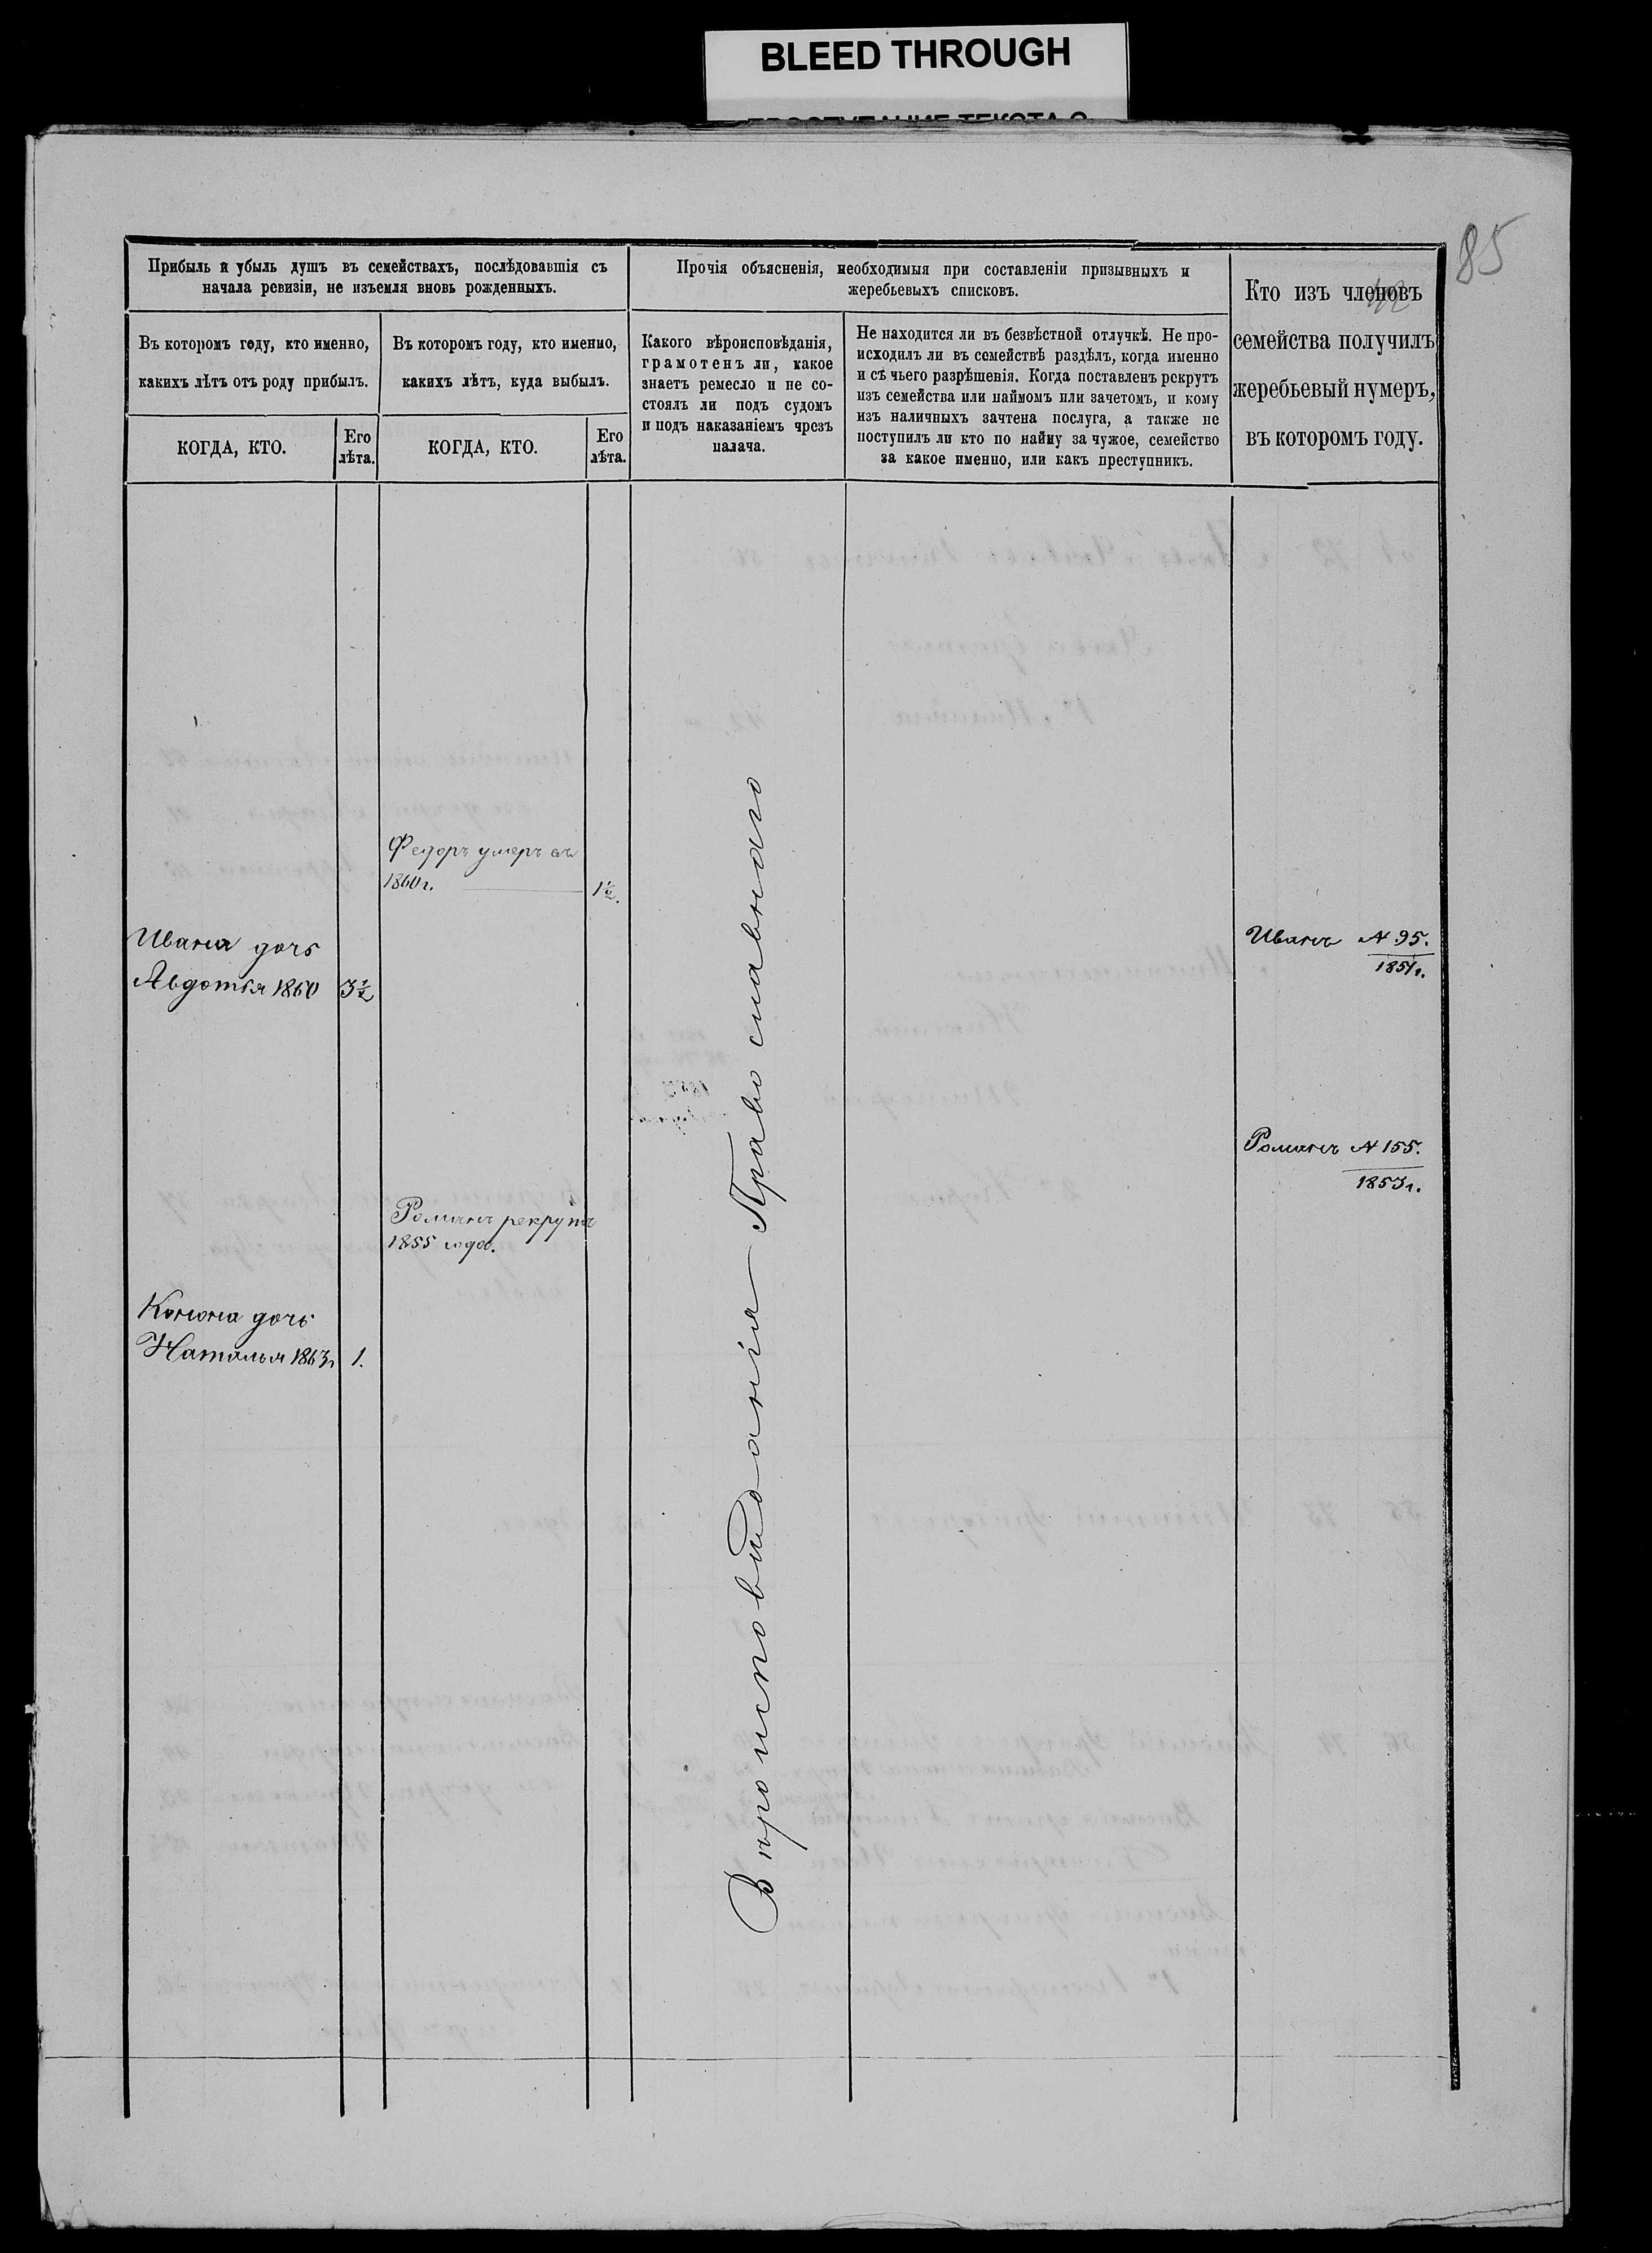 BLEED THROUGH
85
Прибыль и убыль душъ въ семействахъ, послѣдовавшія съ
начала ревизіи, не изъемля вновь рожденныхъ.
Въ которомъ году, кто именно,
какихъ лѣтъ отъ роду прибылъ.
КОГДА, КТО.
Его
лѣта.
Въ которомъ году, кто именно,
какихъ лѣтъ, куда выбылъ.
КОГДА, КТО.
Его
лѣта.
Прочія объясненія, необходимыя при составленіи призывныхъ и
жеребьевыхъ списковъ.
Какого вѣроисповѣданія,
грамотенъ ли, какое
знаетъ ремесло и не со-
стоялъ ли подъ судомъ
и подъ наказаніемъ чрезъ
палача.
Не находится ли въ безвѣстной отлучкѣ. Не про-
исходилъ ли въ семействѣ раздѣлъ, когда именно
и съ чьего разрѣшенія. Когда поставленъ рекрутъ
изъ семейства или наймомъ или зачетомъ, и кому
изъ наличныхъ зачтена послуга, а также не
поступилъ ли кто по найму за чужое, семейство
за какое именно, или какъ преступникъ.
Кто изъ членовъ
семейства получилъ
жеребьевый нумеръ,
въ которомъ году.
Федоръ умеръ въ
1860 г. 1½.
Ивана дочь
Авдотья 1860 3½
Иванъ № 95.
1851 г.
Романъ № 155.
1853 г.
Романъ рекрутъ
1855 года.
Конона дочь
Наталья 1863 г 1.
Вѣроисповѣданія Православнаго